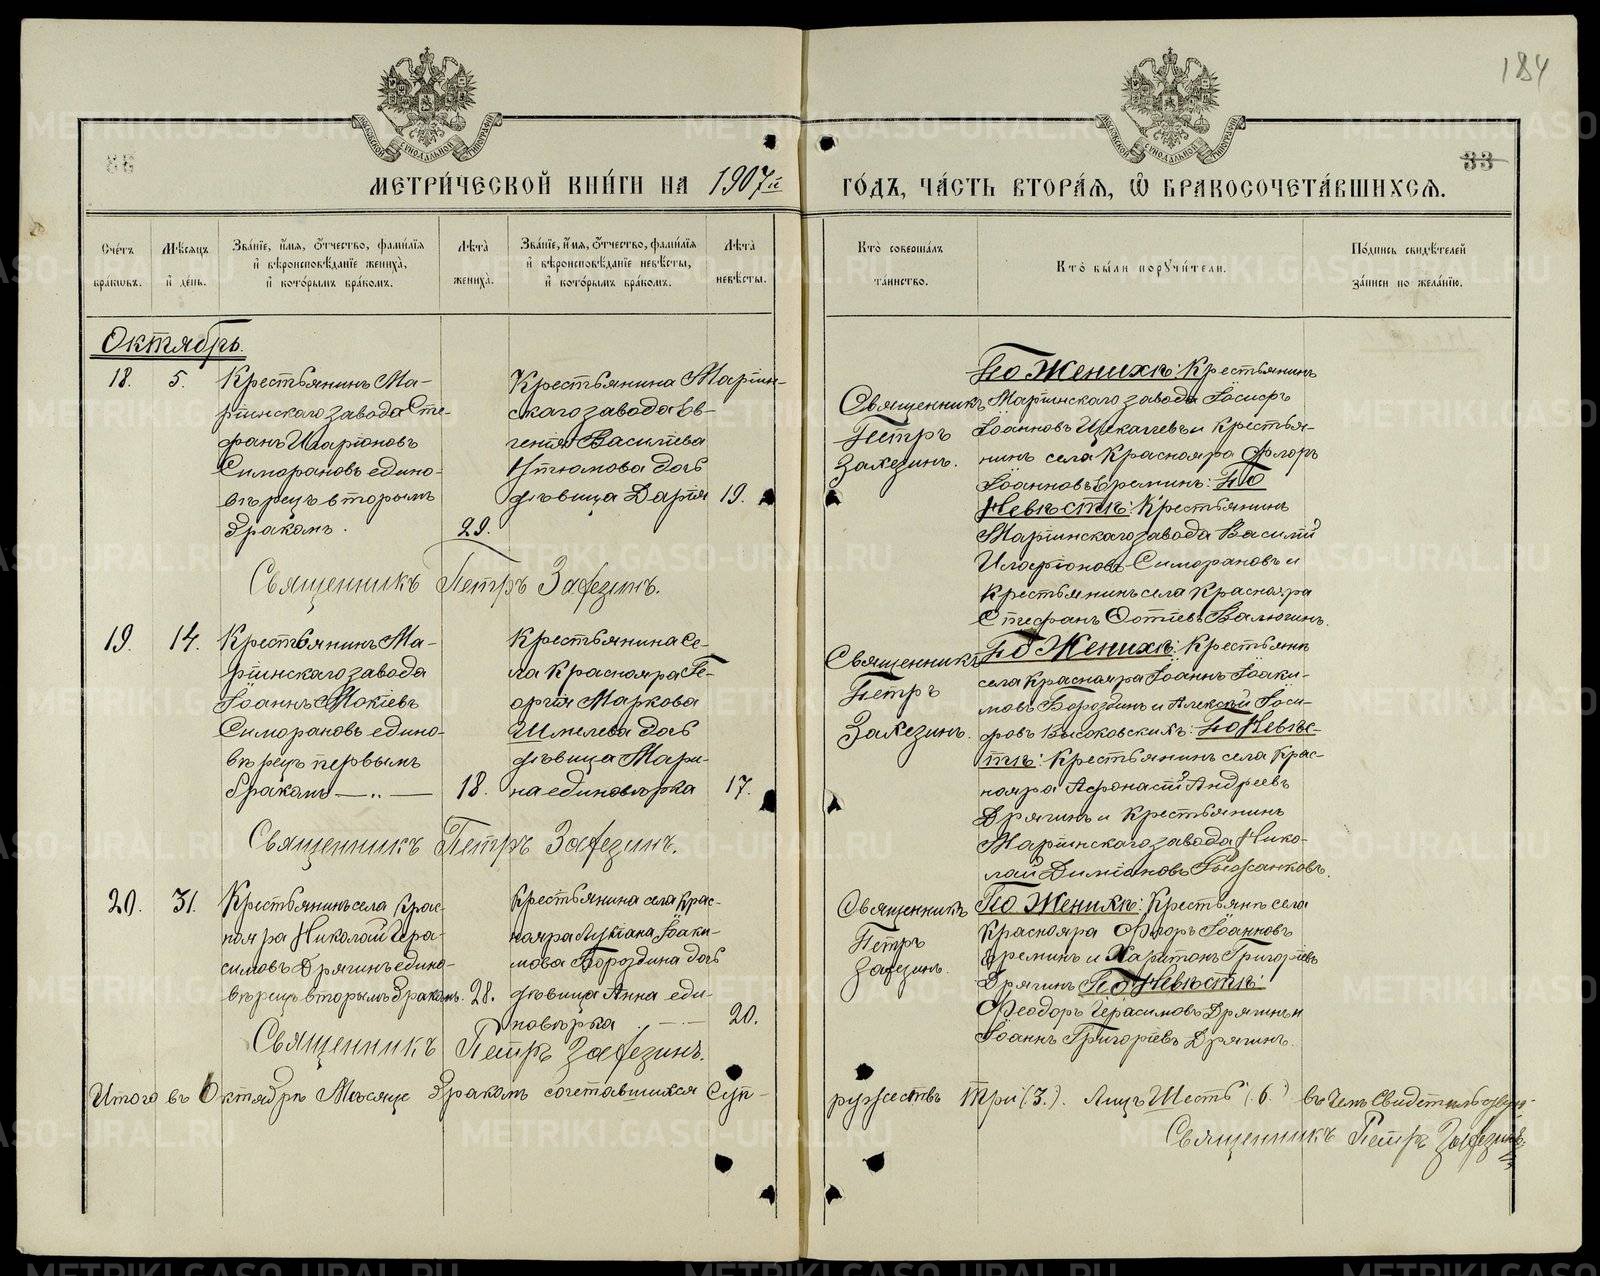 184
33
МЕТРИ́ЧЕСКОЙ КНИ́ГИ НА 1907й ГО́ДЪ, ЧА́СТЬ ВТОРА́Я, Ѡ БРАКОСОЧЕТА́ВШИХСЯ.
Сче́тъ бра́ковъ.
Мѣ́сяцъ и҆ де́нь.
Зва́нїе, и҆́мя, ѻ҆́тчество, фами́лїя и҆ вѣроисповѣ́данїе жениха̀, и҆ кото́рымъ бра́комъ.
Лѣта̀ жениха̀.
Зва́нїе, и҆́мя, ѻ҆́тчество, фами́лїя и҆ вѣроисповѣ́данїе невѣ́сты, и҆ кото́рымъ бра́комъ.
Лѣта̀ невѣ́сты.
Кто̀ соверша́лъ та́инство.
Кто̀ бы́ли порꙋчи́тели.
По́дпись свидѣ́телей за́писи по жела́нїю.
Октябрь.
18.
5.
Крестьянинъ Ма-
рiинскаго завода Сте-
фанъ Иларiоновъ
Симорановъ едино-
вѣрецъ вторымъ
бракомъ.
29.
Крестьянина Марiин-
скаго завода Ев-
генiя Василiева
Утюмова дочь
дѣвица Дарiя
19.
Священникъ
Петръ
Залезинъ.
По Женихѣ: Крестьянинъ
Марiинскаго завода Iосифъ
Iоанновъ и крестья-
нинъ села Краснояра Флоръ
Iоанновъ Ереминъ: По
Невѣстѣ: Крестьянинъ
Марiинскаго завода Василiй
Иларiоновъ Симорановъ и
крестьянинъ села Краснояра
Стефанъ Фотiевъ Валюгинъ.
Священникъ Петръ Залезинъ.
19.
14.
Крестьянинъ Ма-
рiинскаго завода
Iоаннъ Мокiевъ
Симорановъ едино-
вѣрецъ первымъ
бракомъ — „ —
18.
Крестьянина се-
ла Краснояра Ге-
оргiя Маркова
Шмелева дочь
дѣвица Мари-
на единовѣрка
17.
Священникъ
Петръ
Залезинъ.
По Женихѣ: Крестьяне
села Краснояра Iоаннъ Iоаки-
мовъ Бороздинъ и Алексѣй Iоси-
фовъ Высоковскихъ: По Невѣс-
тѣ: Крестьянинъ села Крас-
нояра Афонасiй Андреевъ
Дрягинъ и Крестьянинъ
Марiинскаго завода Нико-
лай Димiановъ
Священникъ Петръ Залезинъ.
20.
31.
Крестьянинъ села Крас-
нояра Николай Гера-
симовъ Дрягинъ едино-
вѣрецъ вторымъ бракомъ.
28.
Крестьянина села Крас-
нояра Лукiана Iоаки-
мова Бороздина дочь
дѣвица Анна еди-
новѣрка
20.
Священникъ
Петръ
Залезинъ.
По Женихѣ: Крестьяне села
Краснояра Флоръ Iоанновъ
Ереминъ и Харитонъ Григорiевъ
Дрягинъ По Невѣстѣ:
Феодоръ Герасимовъ Дрягинъ и
Iоаннъ Григорiевъ Дрягинъ.
Священникъ Петръ Залезинъ.
Итого въ Октябрѣ Мѣсяце бракомъ сочетавшихся Суп-
ружествъ Три (3.). Лицъ Шесть (6.) въ чемъ Свидетельствую.
Священникъ Петръ Залезинъ
METRIKI.GASO-URAL.RU